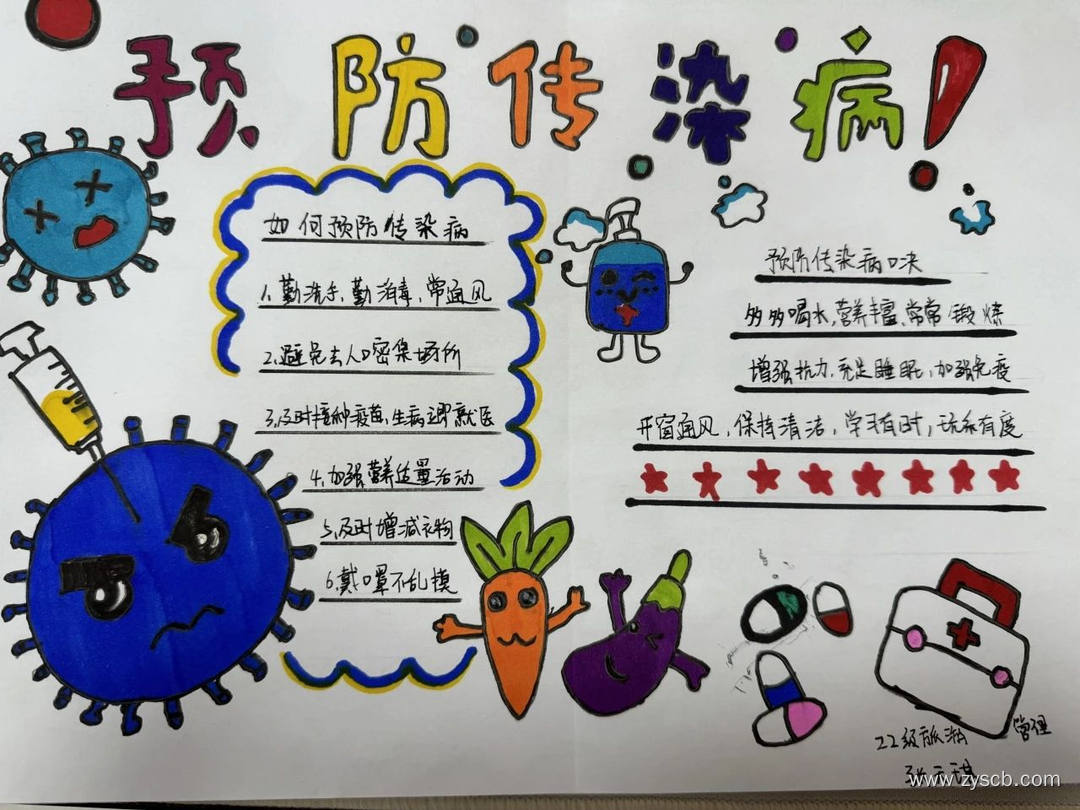 预防传染病!
如何预防传染病
1、勤洗手、勤消毒、常通风
2、避免去人口密集场所
3、及时接种疫苗、生病立即就医
4、加强营养适量活动
5、及时增减衣物
6、戴口罩不乱摸
预防传染病口诀
多多喝水,营养丰富,常常锻炼
增强抗力,充足睡眠,加强免疫
开窗通风,保持清洁,学习有时,玩乐有度
22级 管理
www.zyscb.com